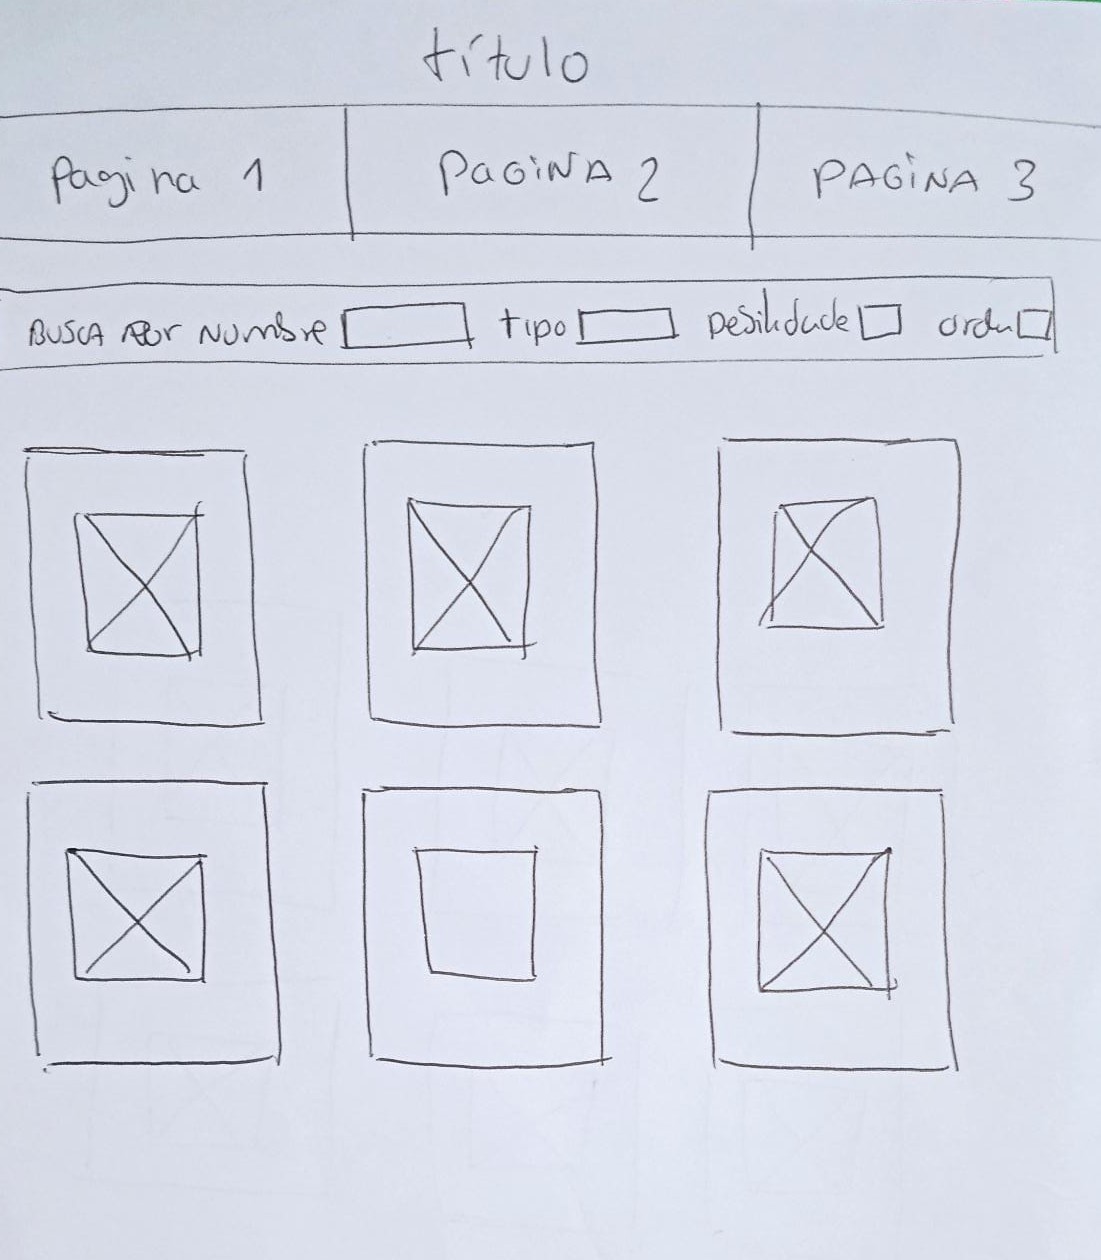 título
Pagina 1 PAGINA 2 PAGINA 3
BUSCA POR NUMBRE tipo Desilidade ordn